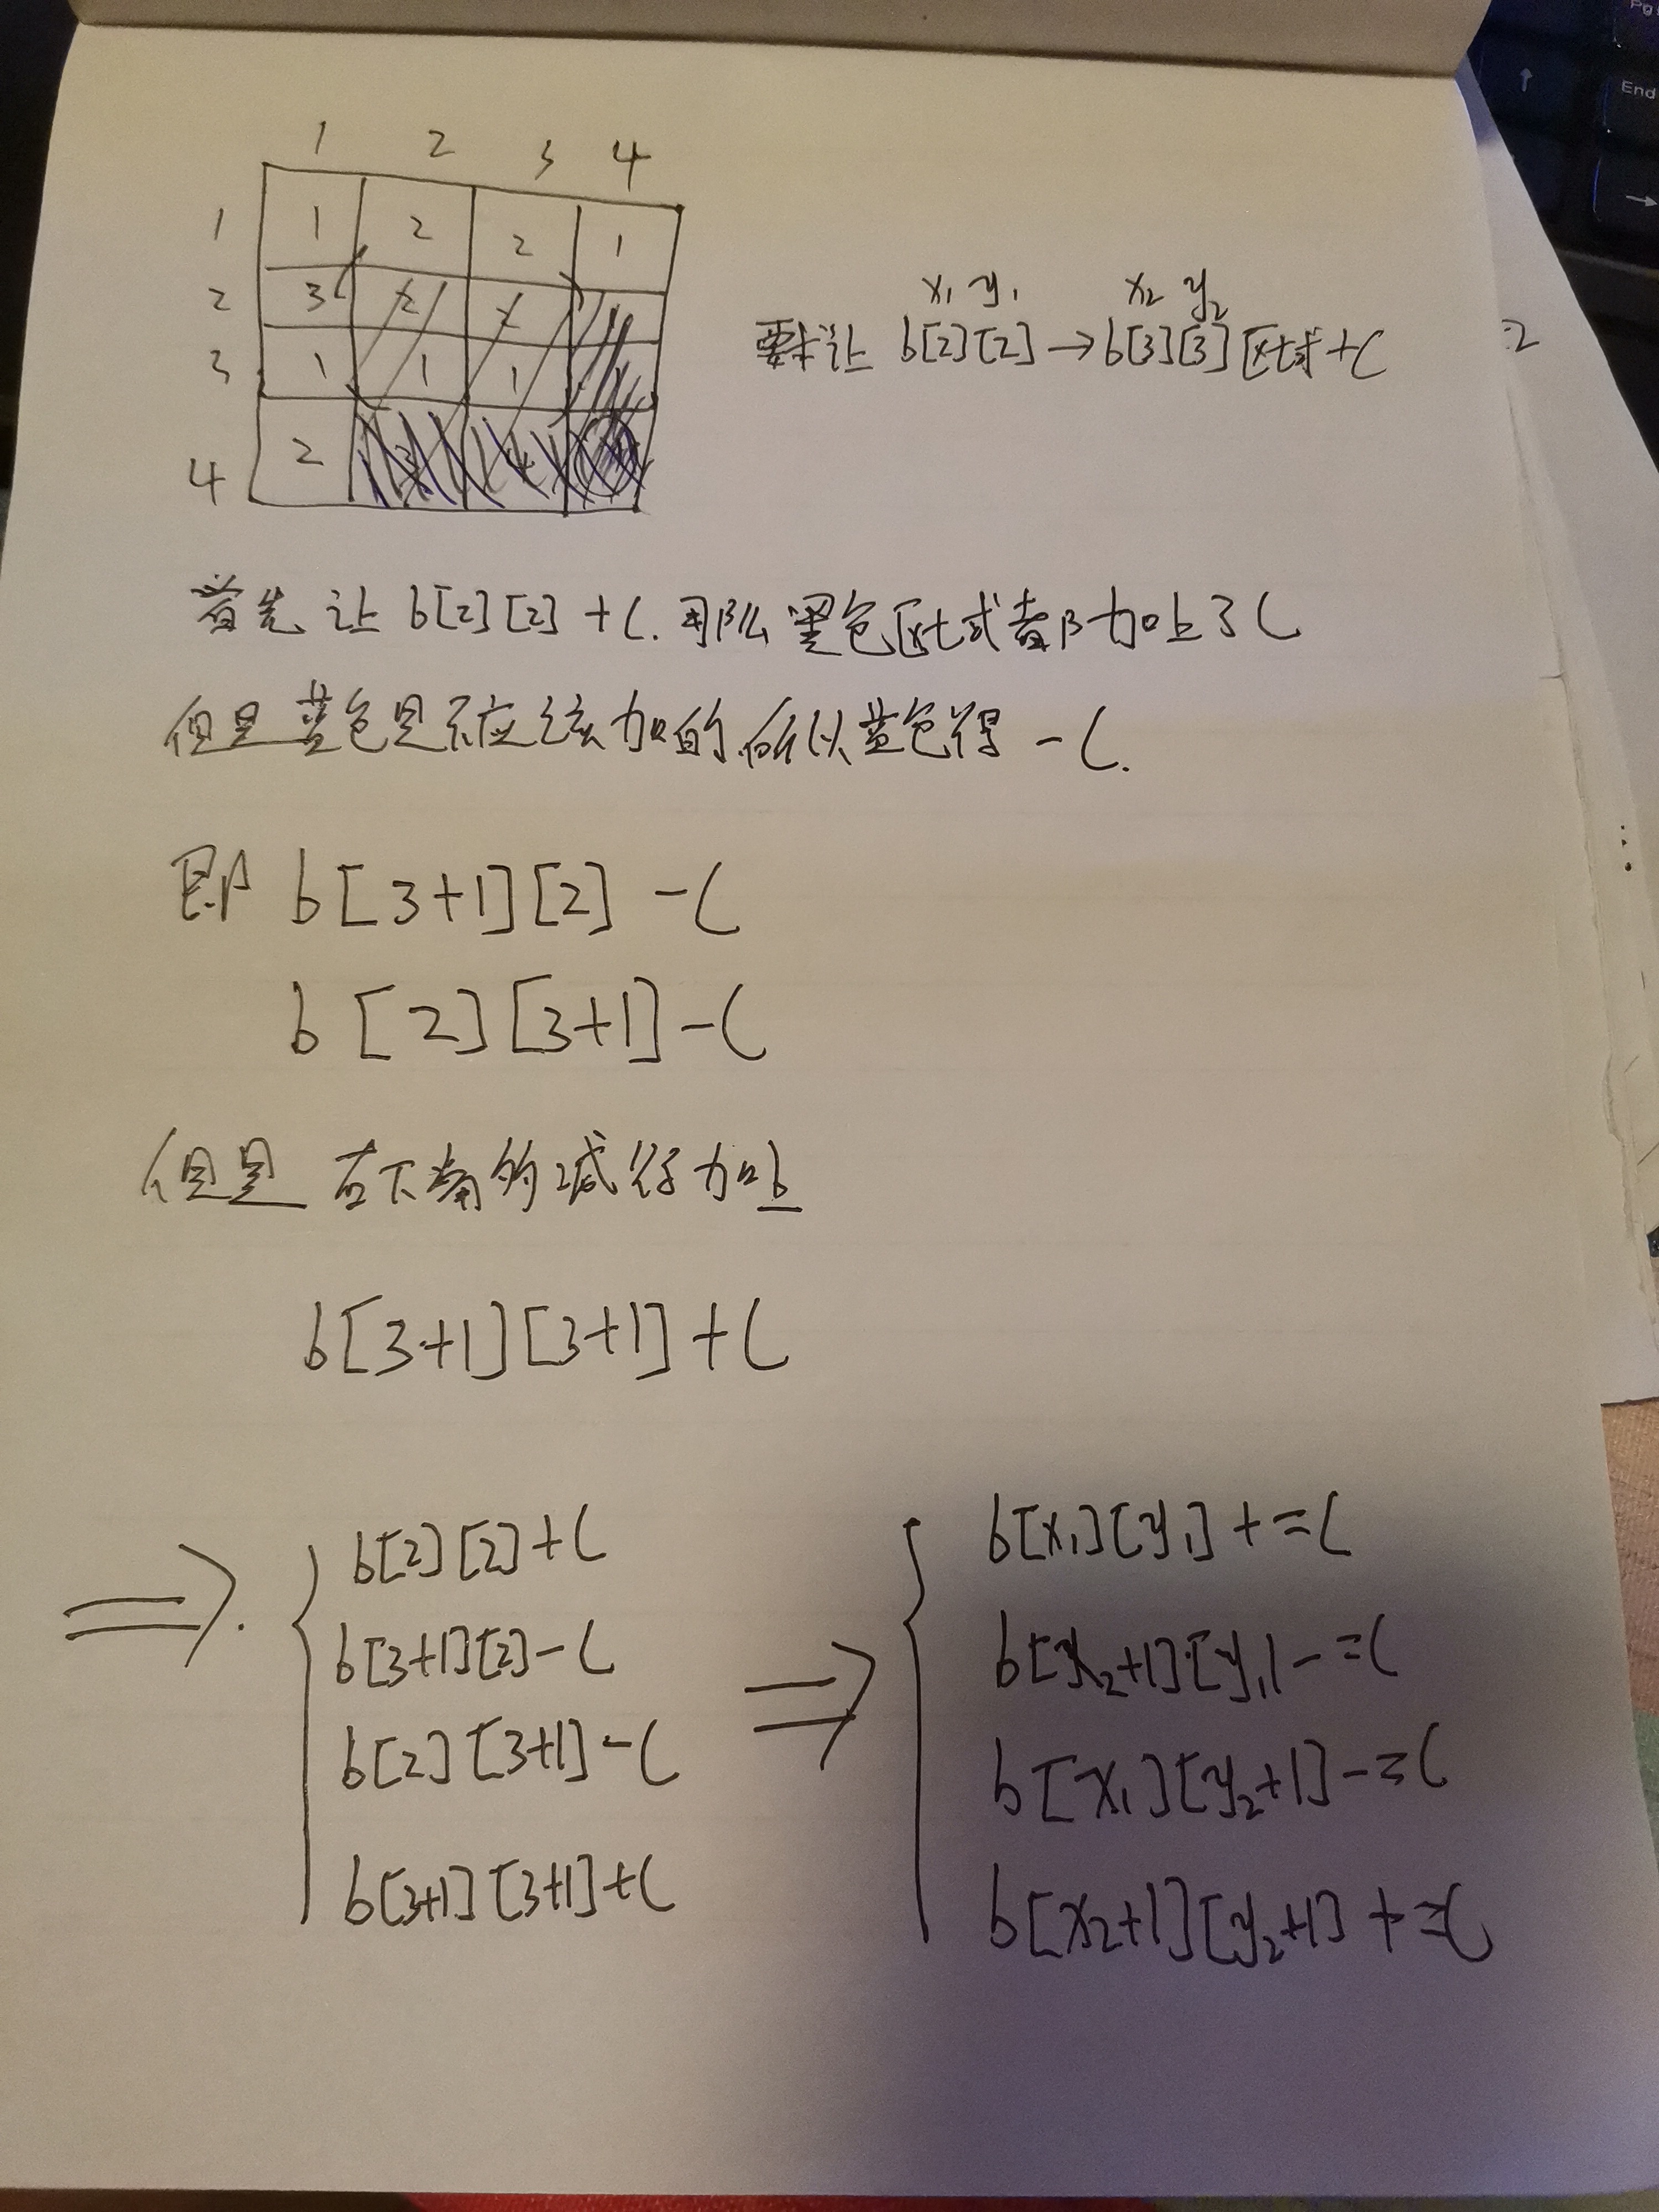 1 2 3 4
1 1 2 2 1
2 3 2
3 1 1 1
4 2 3
x₁ y₁ x₂ y₂
要求让 b[2][2]→b[3][3]区域+C
首先让 b[2][2]+C. 那么黑色区域都加上了C
但是蓝色是不应该加的,所以蓝色得 -C.
即 b[3+1][2] -C
b[2][3+1]-C
但是 右下角的减得加上
b[3+1][3+1]+C
⇒ b[2][2]+C
b[3+1][2]-C
b[2][3+1]-C
b[3+1][3+1]+C
⇒ b[x₁][y₁]+=C
b[x₂+1][y₁]-=C
b[x₁][y₂+1]-=C
b[x₂+1][y₂+1]+=C
Pg
End